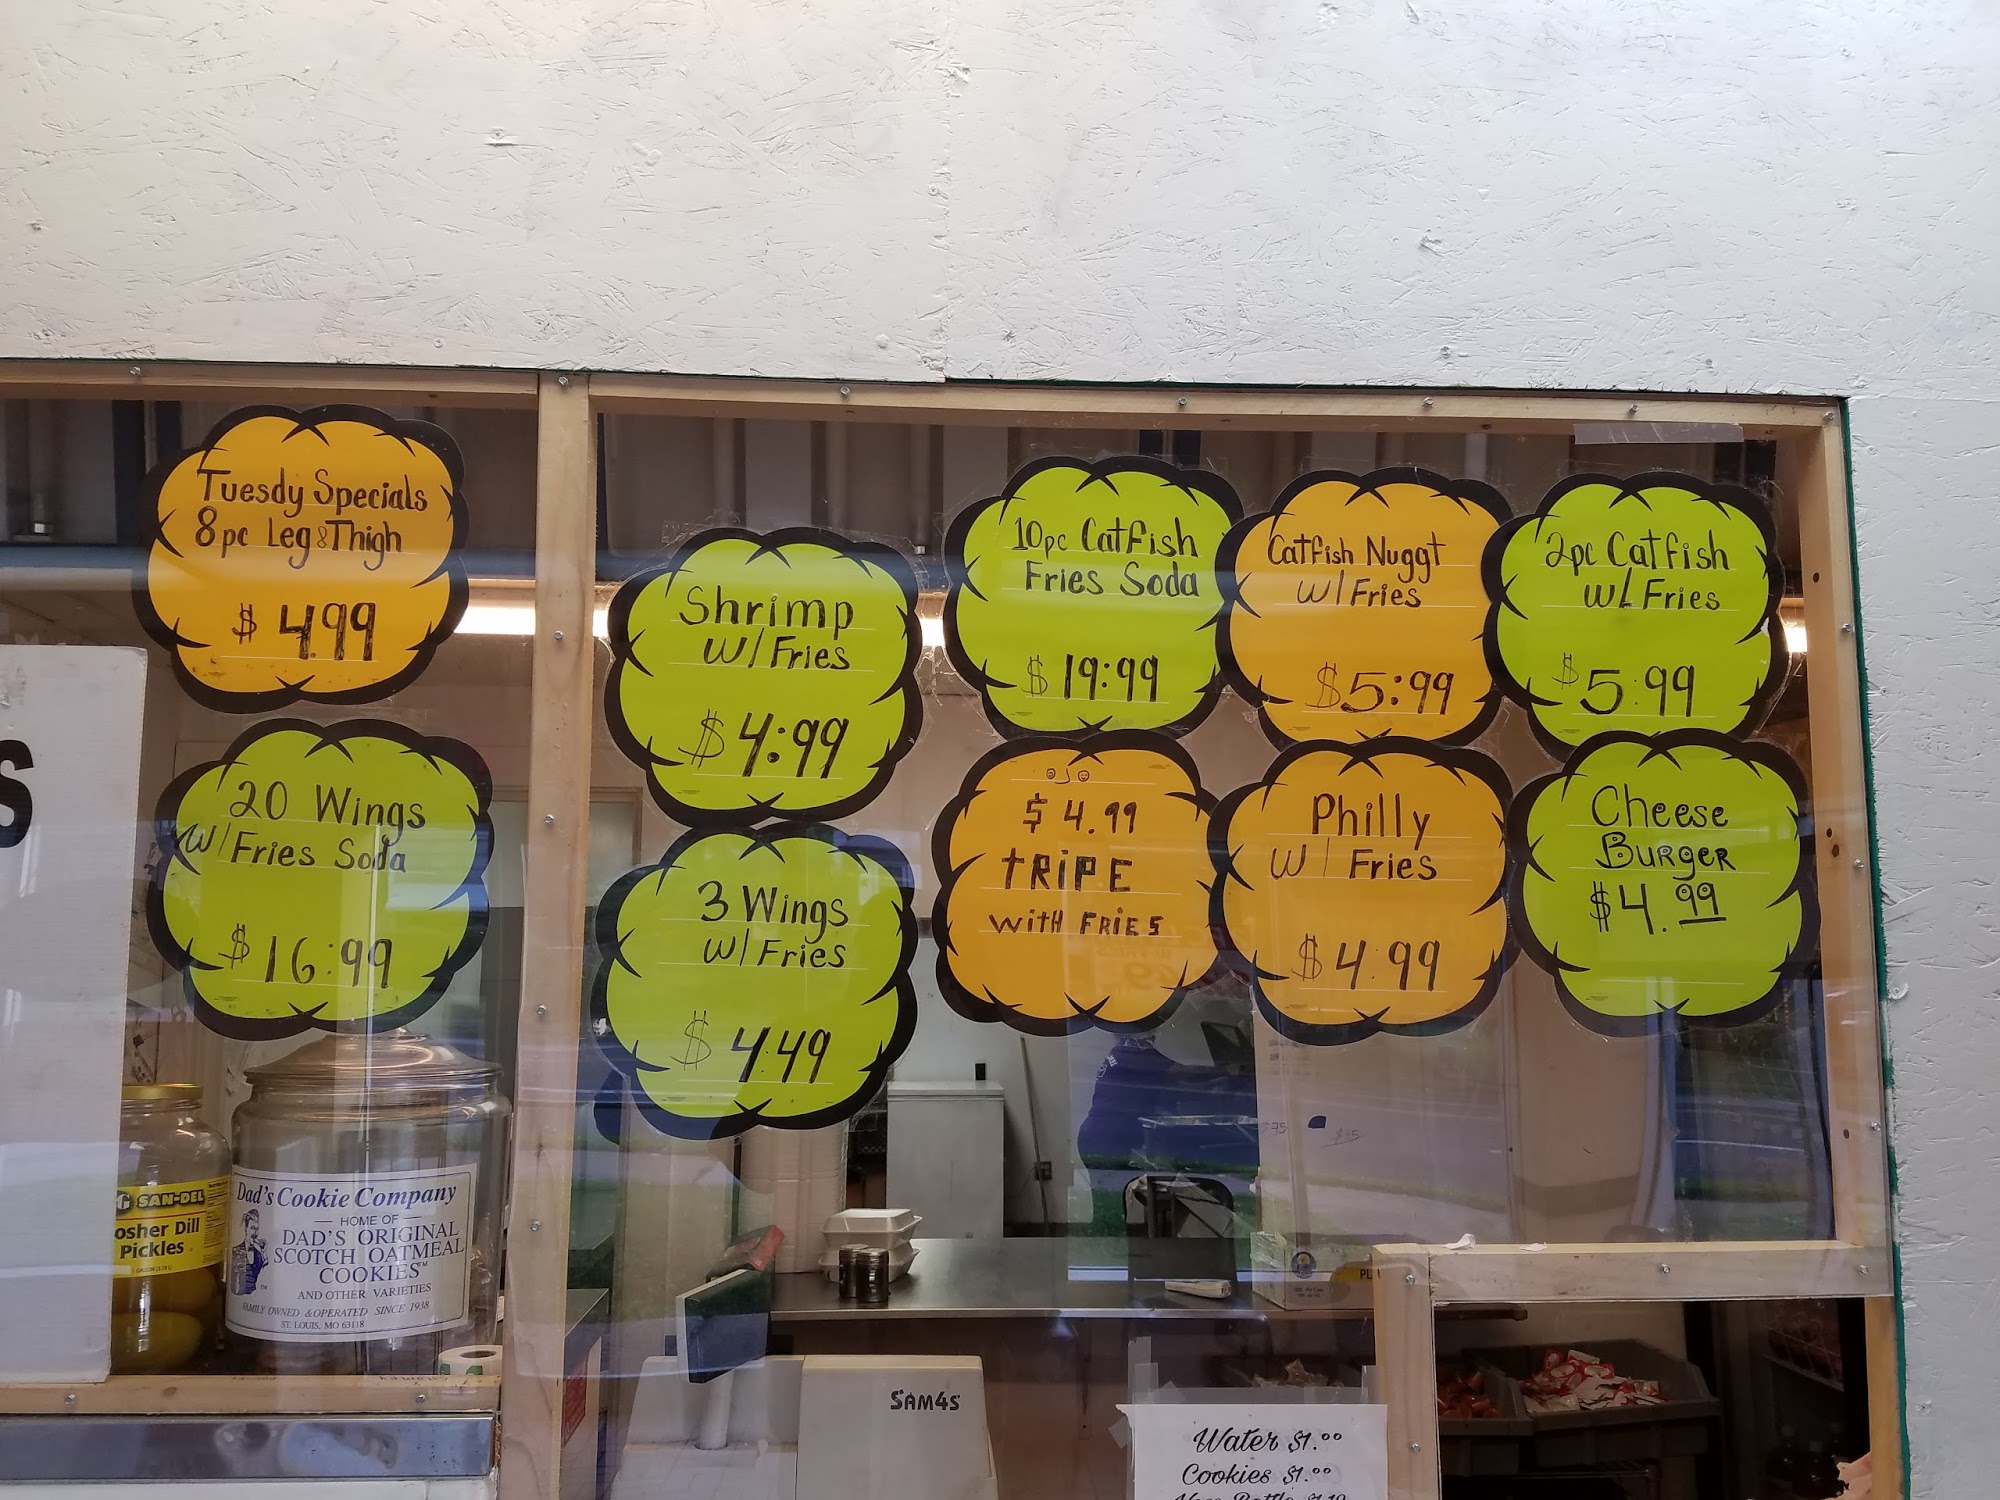 Tuesdy Specials
8pc Leg & Thigh
$ 4.99
20 Wings
w/Fries Soda
$ 16:99
Shrimp
w/Fries
$ 4:99
3 Wings
w/Fries
$ 4.49
10pc Catfish
Fries Soda
$ 19:99
Catfish Nuggt
w/Fries
$5:99
2pc Catfish
w/Fries
$5.99
$4.99
tRiPE
with FRIES
Philly
w/ Fries
$4.99
Cheese
Burger
$4.99
S
SAN-DEL
osher Dill
Pickles
Dad's Cookie Company
HOME OF
DAD'S ORIGINAL
SCOTCH OATMEAL
COOKIES™
AND OTHER VARIETIES
FAMILY OWNED & OPERATED SINCE 1938
ST. LOUIS, MO 63118
SAM4S
Water $1.00
Cookies $1.00